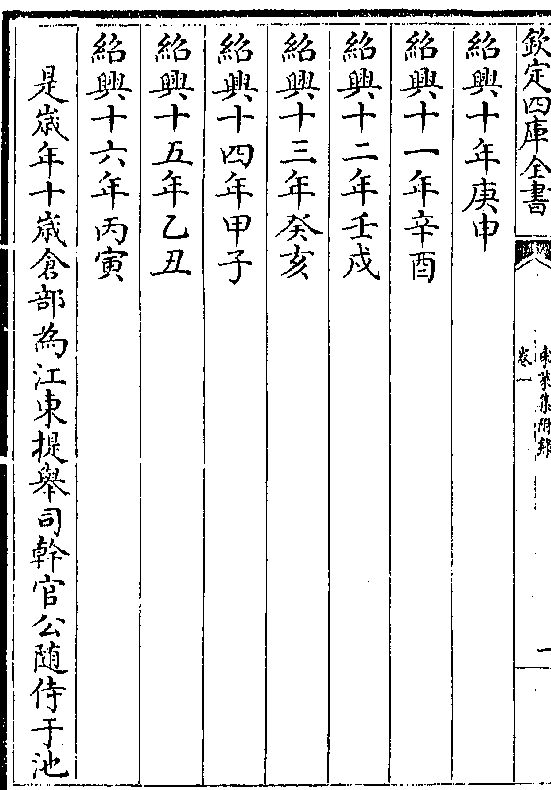 欽定四庫全書
東萊集附錄
卷一
一
紹興十年庚申
紹興十一年辛酉
紹興十二年壬戌
紹興十三年癸亥
紹興十四年甲子
紹興十五年乙丑
紹興十六年丙寅
是歲年十歲倉部為江東提舉司幹官公随侍于池